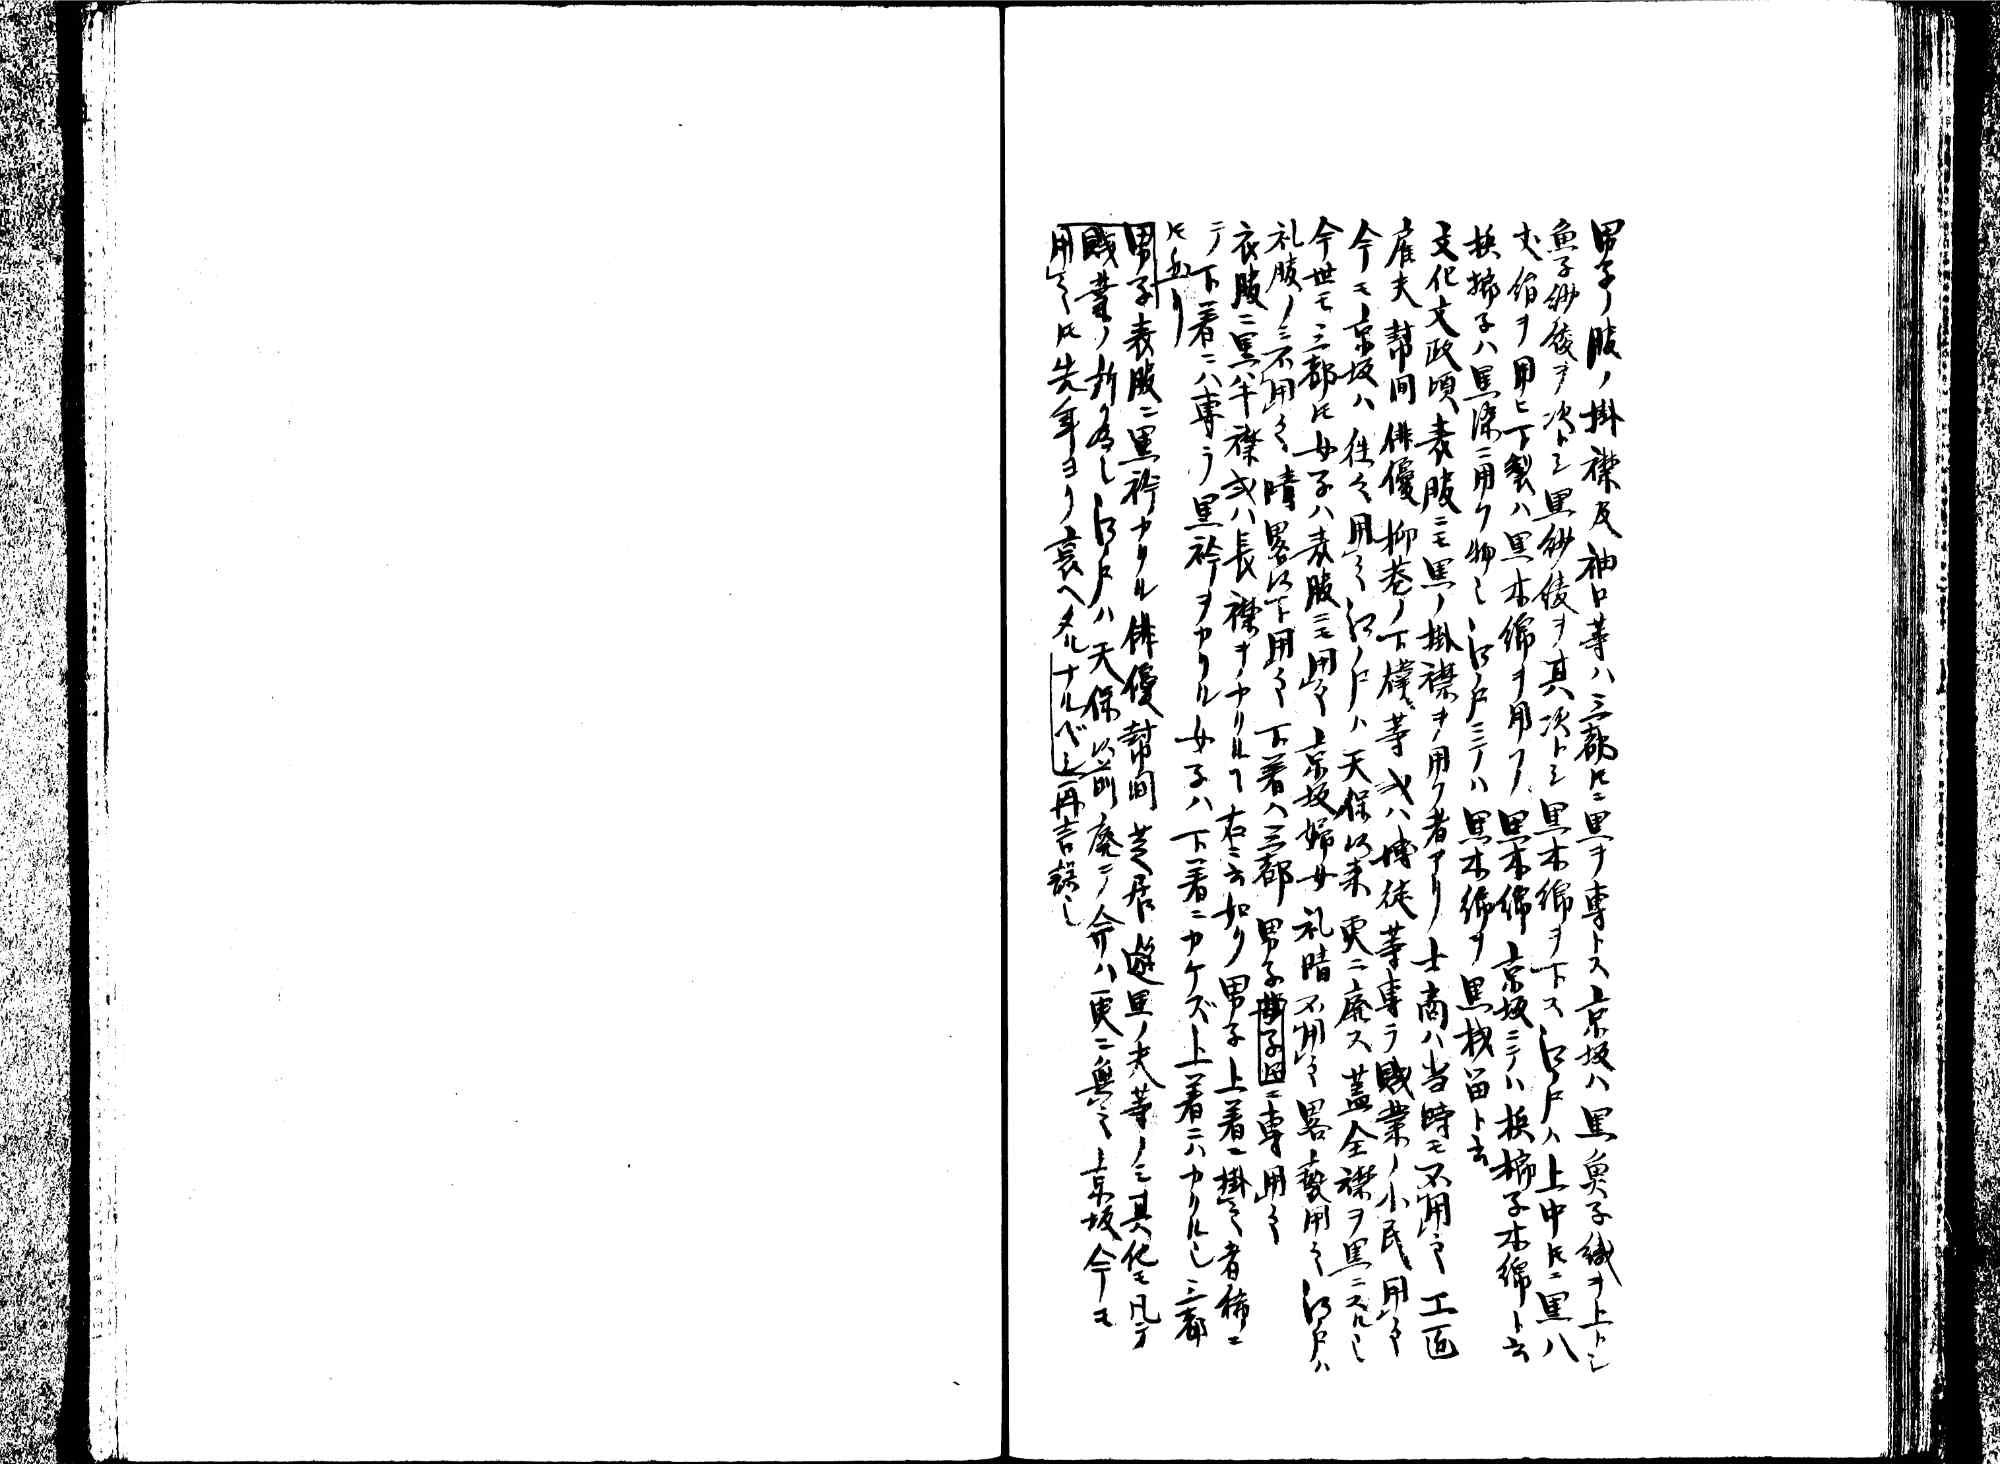 男子ノ服ノ掛襟及袖口等ハ三都トモニ黒ヲ専トス京坂ハ黒魚子織ヲ上トシ
魚子紗綾ヲ次トシ黒紗綾ヲ其次トシ黒木綿ヲ下ス江戸ハ上中トモニ黒八
丈絹ヲ用ヒ下製ハ黒木綿ヲ用フノ黒木綿京坂ニテハ挨拶子木綿ト云
挨拶子ハ黒染ニ用フ物也江戸ニテハ黒木綿ヲ黒桟留ト云
文化文政頃表服ニモ黒ノ掛襟ヲ用フ者アリ士商ハ当時モ不用之工匠
雇夫幇間俳優柳巷ノ下僕等或ハ博徒等専ラ賎業ノ小民用之
今モ京坂ハ往々用之江戸ハ天保以来更ニ廃ス蓋全襟ヲ黒ニスル也
今世モ三都トモ女子ハ表服ニモ用之京坂婦女礼晴不用之畧褻用之江戸ハ
礼服ノミ不用之晴畧以下用之下着ヘ三都男子専用之
衣服ニ黒半襟或ハ長襟ヲカクルコト右ニ云如ク男子上着ニ掛之者稀ニ
テ下着ニハ専ラ黒衿ヲカクル女子ハ下着ニカケズ上着ニハカクル也三都
トモ然リ
男子表服ニ黒衿カクル俳優幇間芝居遊里ノ夫等ノミ其他モ凡テ
賎業ノ所為也江戸ハ天保以前廃テ今ハ更ニ無之京坂今モ
用之トモ先年ヨリ衰ヘタルナルベシ再言誤也